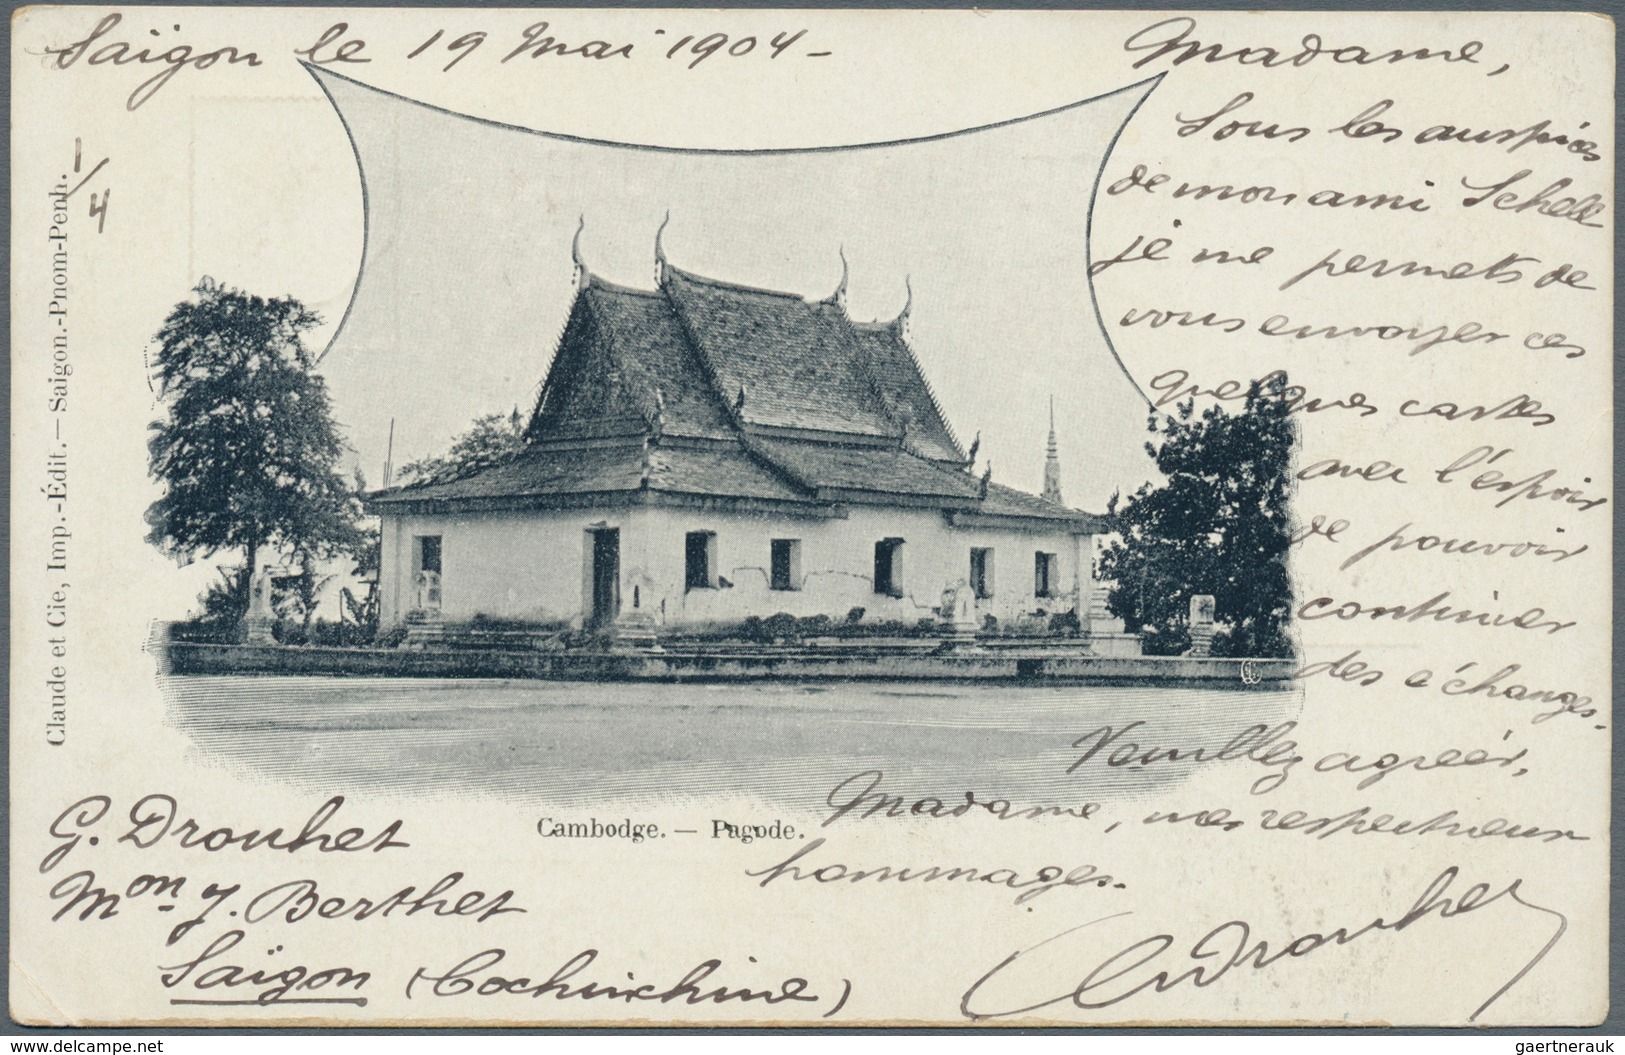 Saïgon le 19 Mai 1904 -
1/4
Madame,
Sous les auspices
de mon ami Schell
je me permets de
vous envoyer ces
quelques cartes
avec l'espoir
de pouvoir
continuer
des échanges.
Veuillez agréer,
Madame, mes respectueux
hommages.
Drouhet
Claude et Cie, Imp.-Édit. — Saigon.-Pnom-Penh.
Cambodge. — Pagode.
G. Drouhet
Mon J. Berthet
Saïgon (Cochinchine)
www.delcampe.net
gaertnerauk